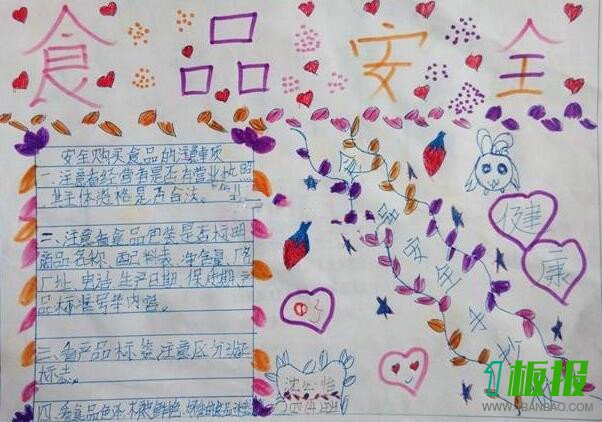 食品安全
安全购买食品的注意事项
一、注意看经营者是否有营业执照,
其主体资格是否合法。
二、注意看食品包装是否标明
商品名称、配料表、净含量、厂名
厂址、电话、生产日期、保质期、产
品标准号等内容。
三、看产品标签,注意区分认证
标志。
四、看食品色泽,
食品安全
健
康
板报
1BANBAO.COM